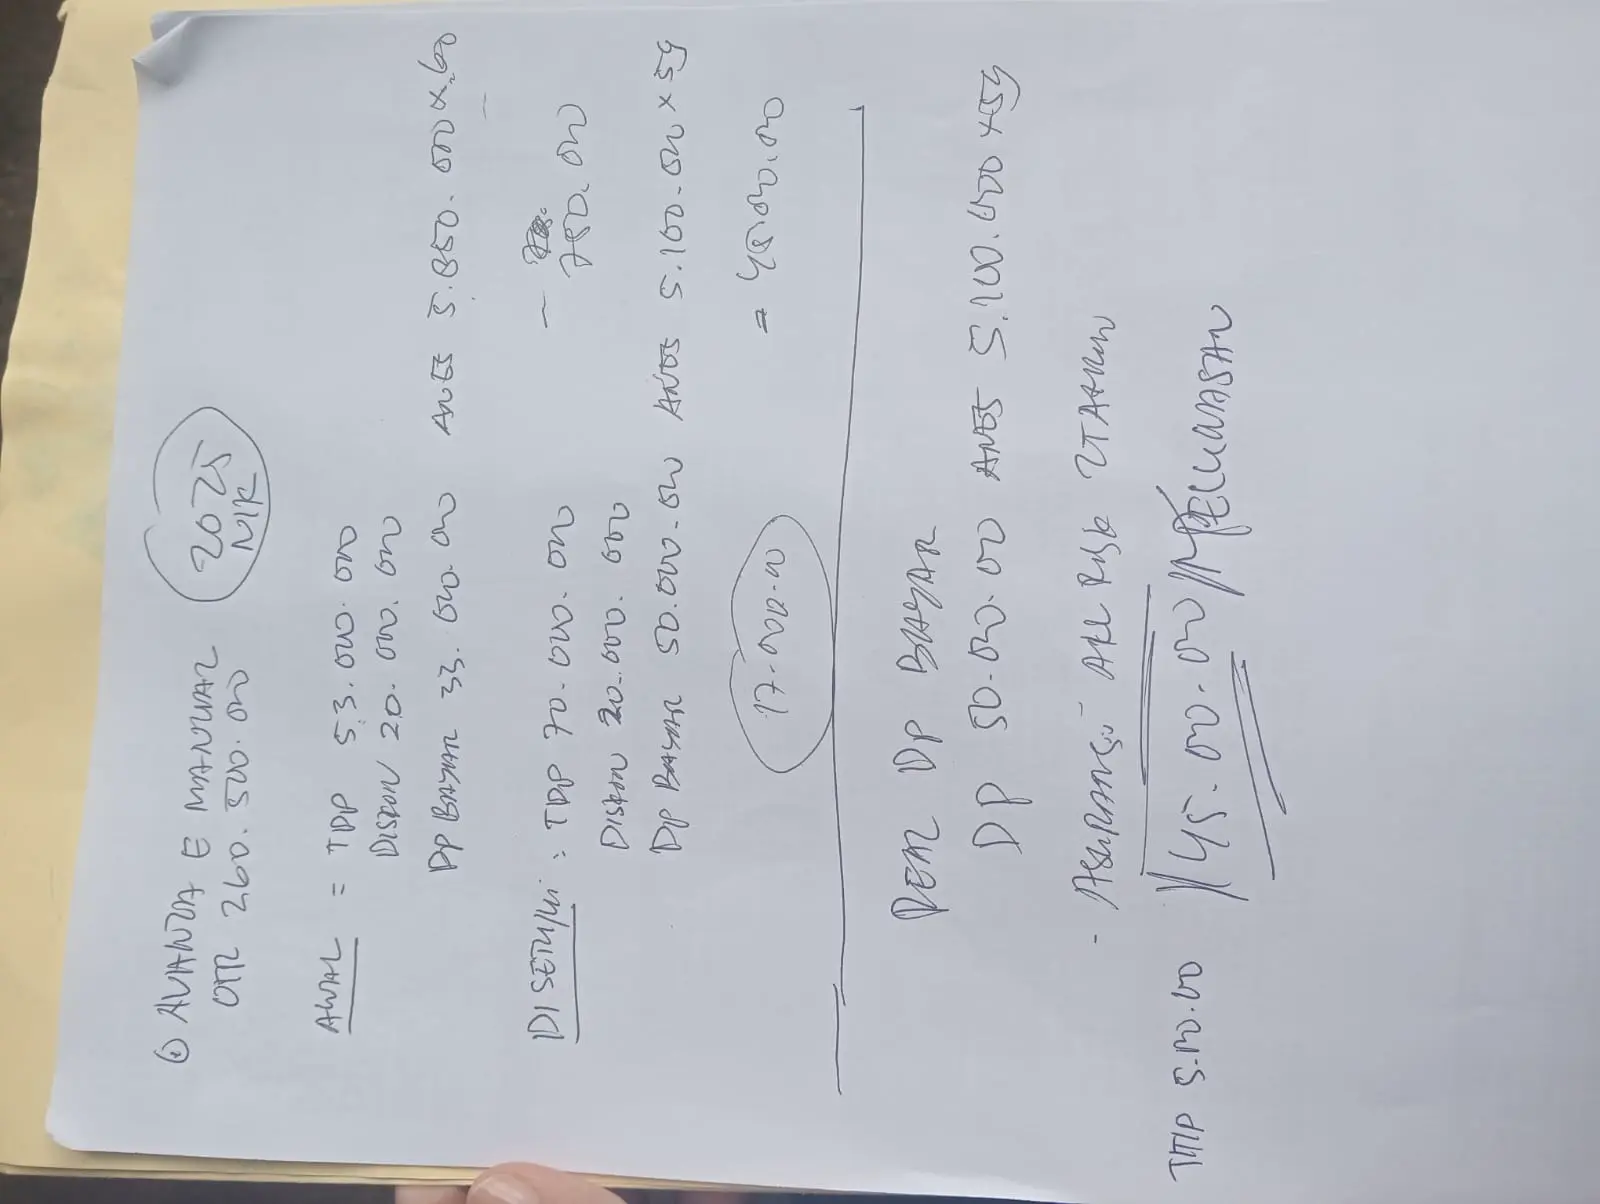 ① AVANZA E MANUAL 2025
OTR 260.500.000 NIK
AWAL = TDP 53.000.000
DISKON 20.000.000
DP BAYAR 33.000.000 ANGS 5.850.000 x 60
DISETUJUI : TDP 70.000.000 — 750.000
DISKON 20.000.000
DP BAYAR 50.000.000 ANGS 5.100.000 x 59
17.000.000 = 45.000.000
REAL DP BAYAR
DP 50.000.000 ANGS 5.100.000 x 59
- ASURANSI ALL RISK 2 TAHUN
TTP 5.000.000 // 45.000.000 // PELUNASAN